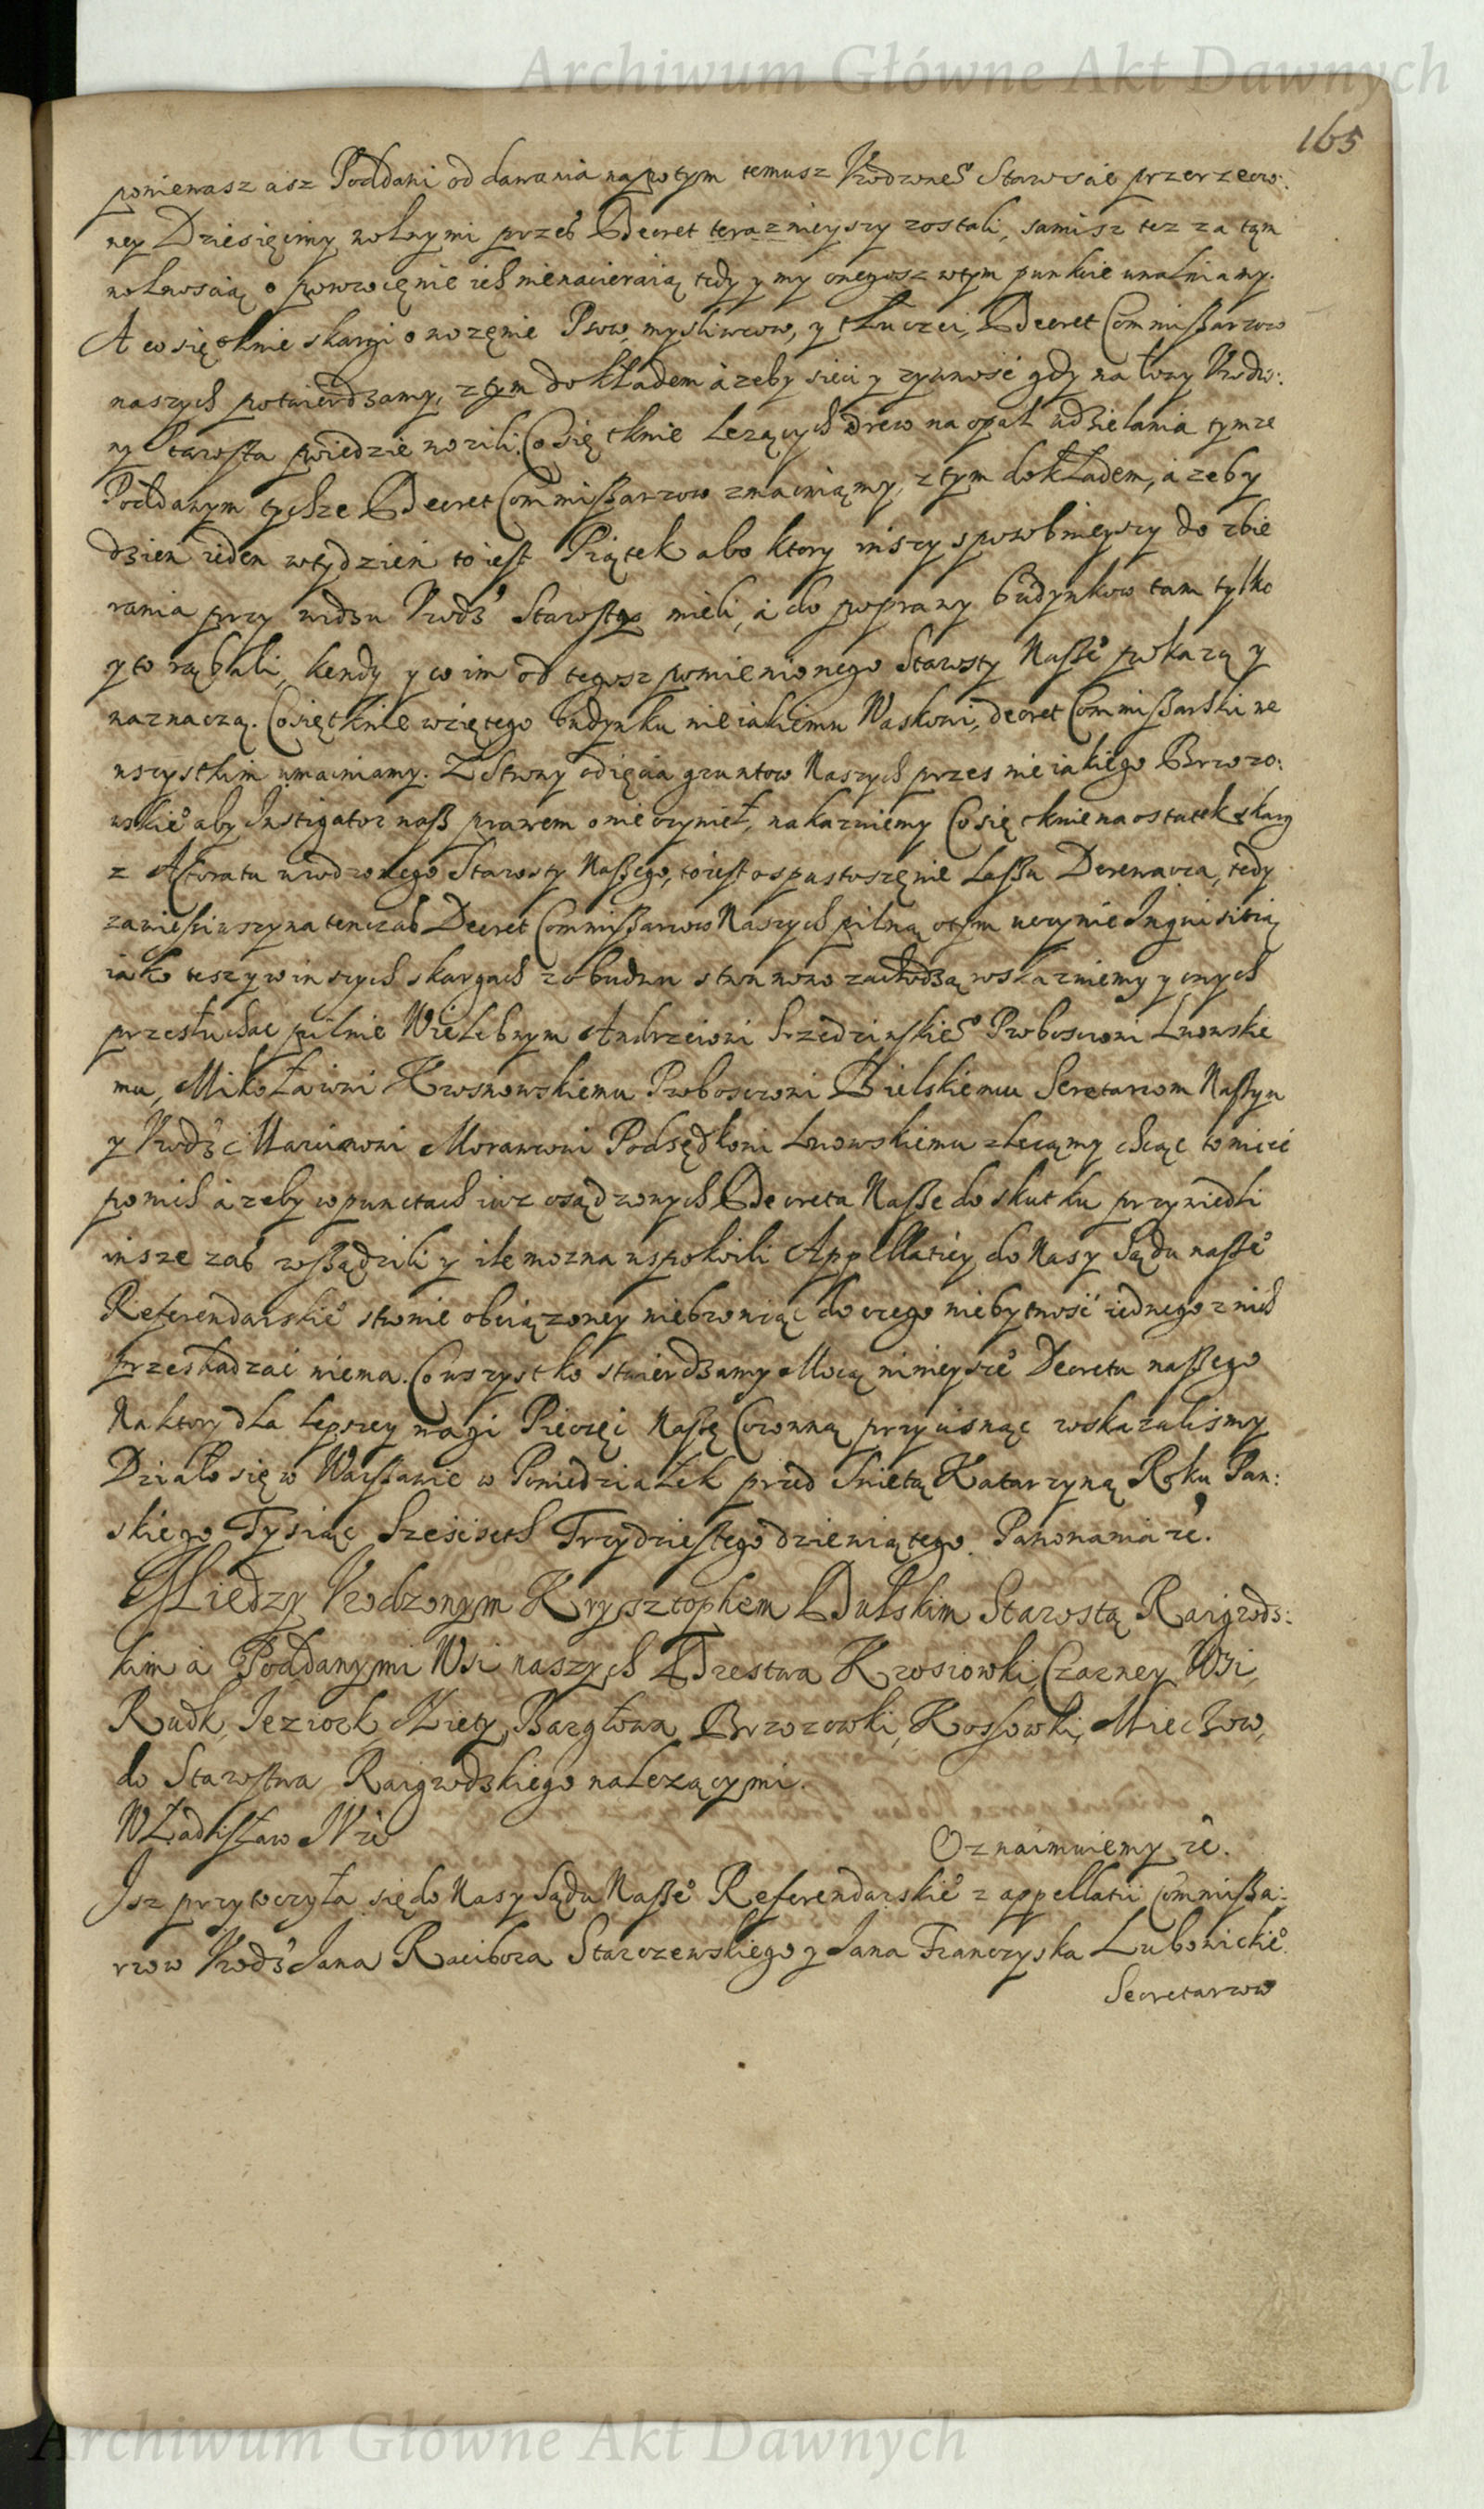 Archiwum Główne Akt Dawnych
165
poniewasz asz Poddani od dawania napotym temusz Vrodzone° Staroscie przerzeczo:
ney Dziesięciny wolnymi przez Decret terazneyszy zostali, samisz tez za tym
wolnoscią o powrocęnie ich nienacieraią tedy y my onegosz wtym punkcie unalniamy.
A co się tknie skargi o wozęnie Psow, mysliwcow, y tłuczei, Decret Commißarzow
naszych potwierdzamy, z tym dokładem ażeby sieci y zywność gdy na łowy Vrodzo:
ny Starosta poiedzie wozili. Co się tknie Lezących drew na opał udzielania tymze
Poddanym tychze Decret Commißarzow zmacniamy, z tym dokładem, azeby
dzien ieden wtydzien to iest Piątek abo ktory inszy sposobnieyszy do zbie
rania przy widzu Vrodz° Starosty mieli, a do poprawy budynkow tam tylko
y to rąbali, kendy y co im od tegosz pomienionego Starosty Naße° pokazą y
naznaczą. Co się tknie wziętego budynku nieiakiemu Waskowi, decret Commißarski we
wszystkim umacniamy. Z Strony odięcia gruntow Naszych przes nieiakiego Brzozo:
wskie° aby Instigator naß prawem o nie czynieł, nakazuiemy Co się tknie na ostatek skarg
z Actoratu urodzonego Starosty Naßego, to iest o spustoszęnie Laßu Derewacza, tedy
zawiesiwszy na tenczas Decret Commißarzow Naszych pilną o tym uczynić Inquisitią
iako tesz y w inszych skargach z obudwu stron nowo zachodzą wskazuiemy y onych
przesłuchać pilnie Wielebnym Andrzeiowi Srzedzinskie° Proboszczowi Lwowskie
mu, Mikołaiowi Krosnowskiemu Proboszczowi Bielskiemu Secretarzom Naßym
y Vrodz: Marcinowi Morawcowi Podsędkowi Lwowskiemu zlecamy chcąc to mieć
po nich azeby w punctach iuz osądzonych Decreta Naße do skutku przywiedli
insze zaś rozsądzili y ile mozna uspokoili Appellatiey do Nas y Sądu naße°
Referendarskie° stronie obciązoney niebroniąc do czego niebytność iednego z nich
przeskadzać niema. Co wszystko stwierdzamy Mocą ninieysze° Decretu naßego
Na ktory dla lepszey wagi Pieczęć Naßę Coronną przycisnąć wskazalismy
Działo się w Warßawie w Poniedziałek przed Swietą Katarzyną Roku Pan:
skiego Tysiąc Szescset Trzydziestego dziewiątego Panowania &c.
Między Vrodzonym Krysztophem Dulskim Starostą Raigrodz:
kim a Poddanymi Wsi naszych Drestwa Krosiowki, Czarney Wsi,
Rudk, Jeziork, Miety, Bargłowa, Brzozowki, Kosowki, Mieczow,
do Starostwa Raigrodzkiego nalezącymi.
Władisław IV &c
Oznaimuiemy &c.
Isz przytoczyła się do Nas y Sądu Naße° Referendarskie° z appellatii Commißa:
rzow Vrodz° Jana Racibora Starczewskiego y Jana Franczyska Lubowickie°
Secretarzow
Archiwum Główne Akt Dawnych